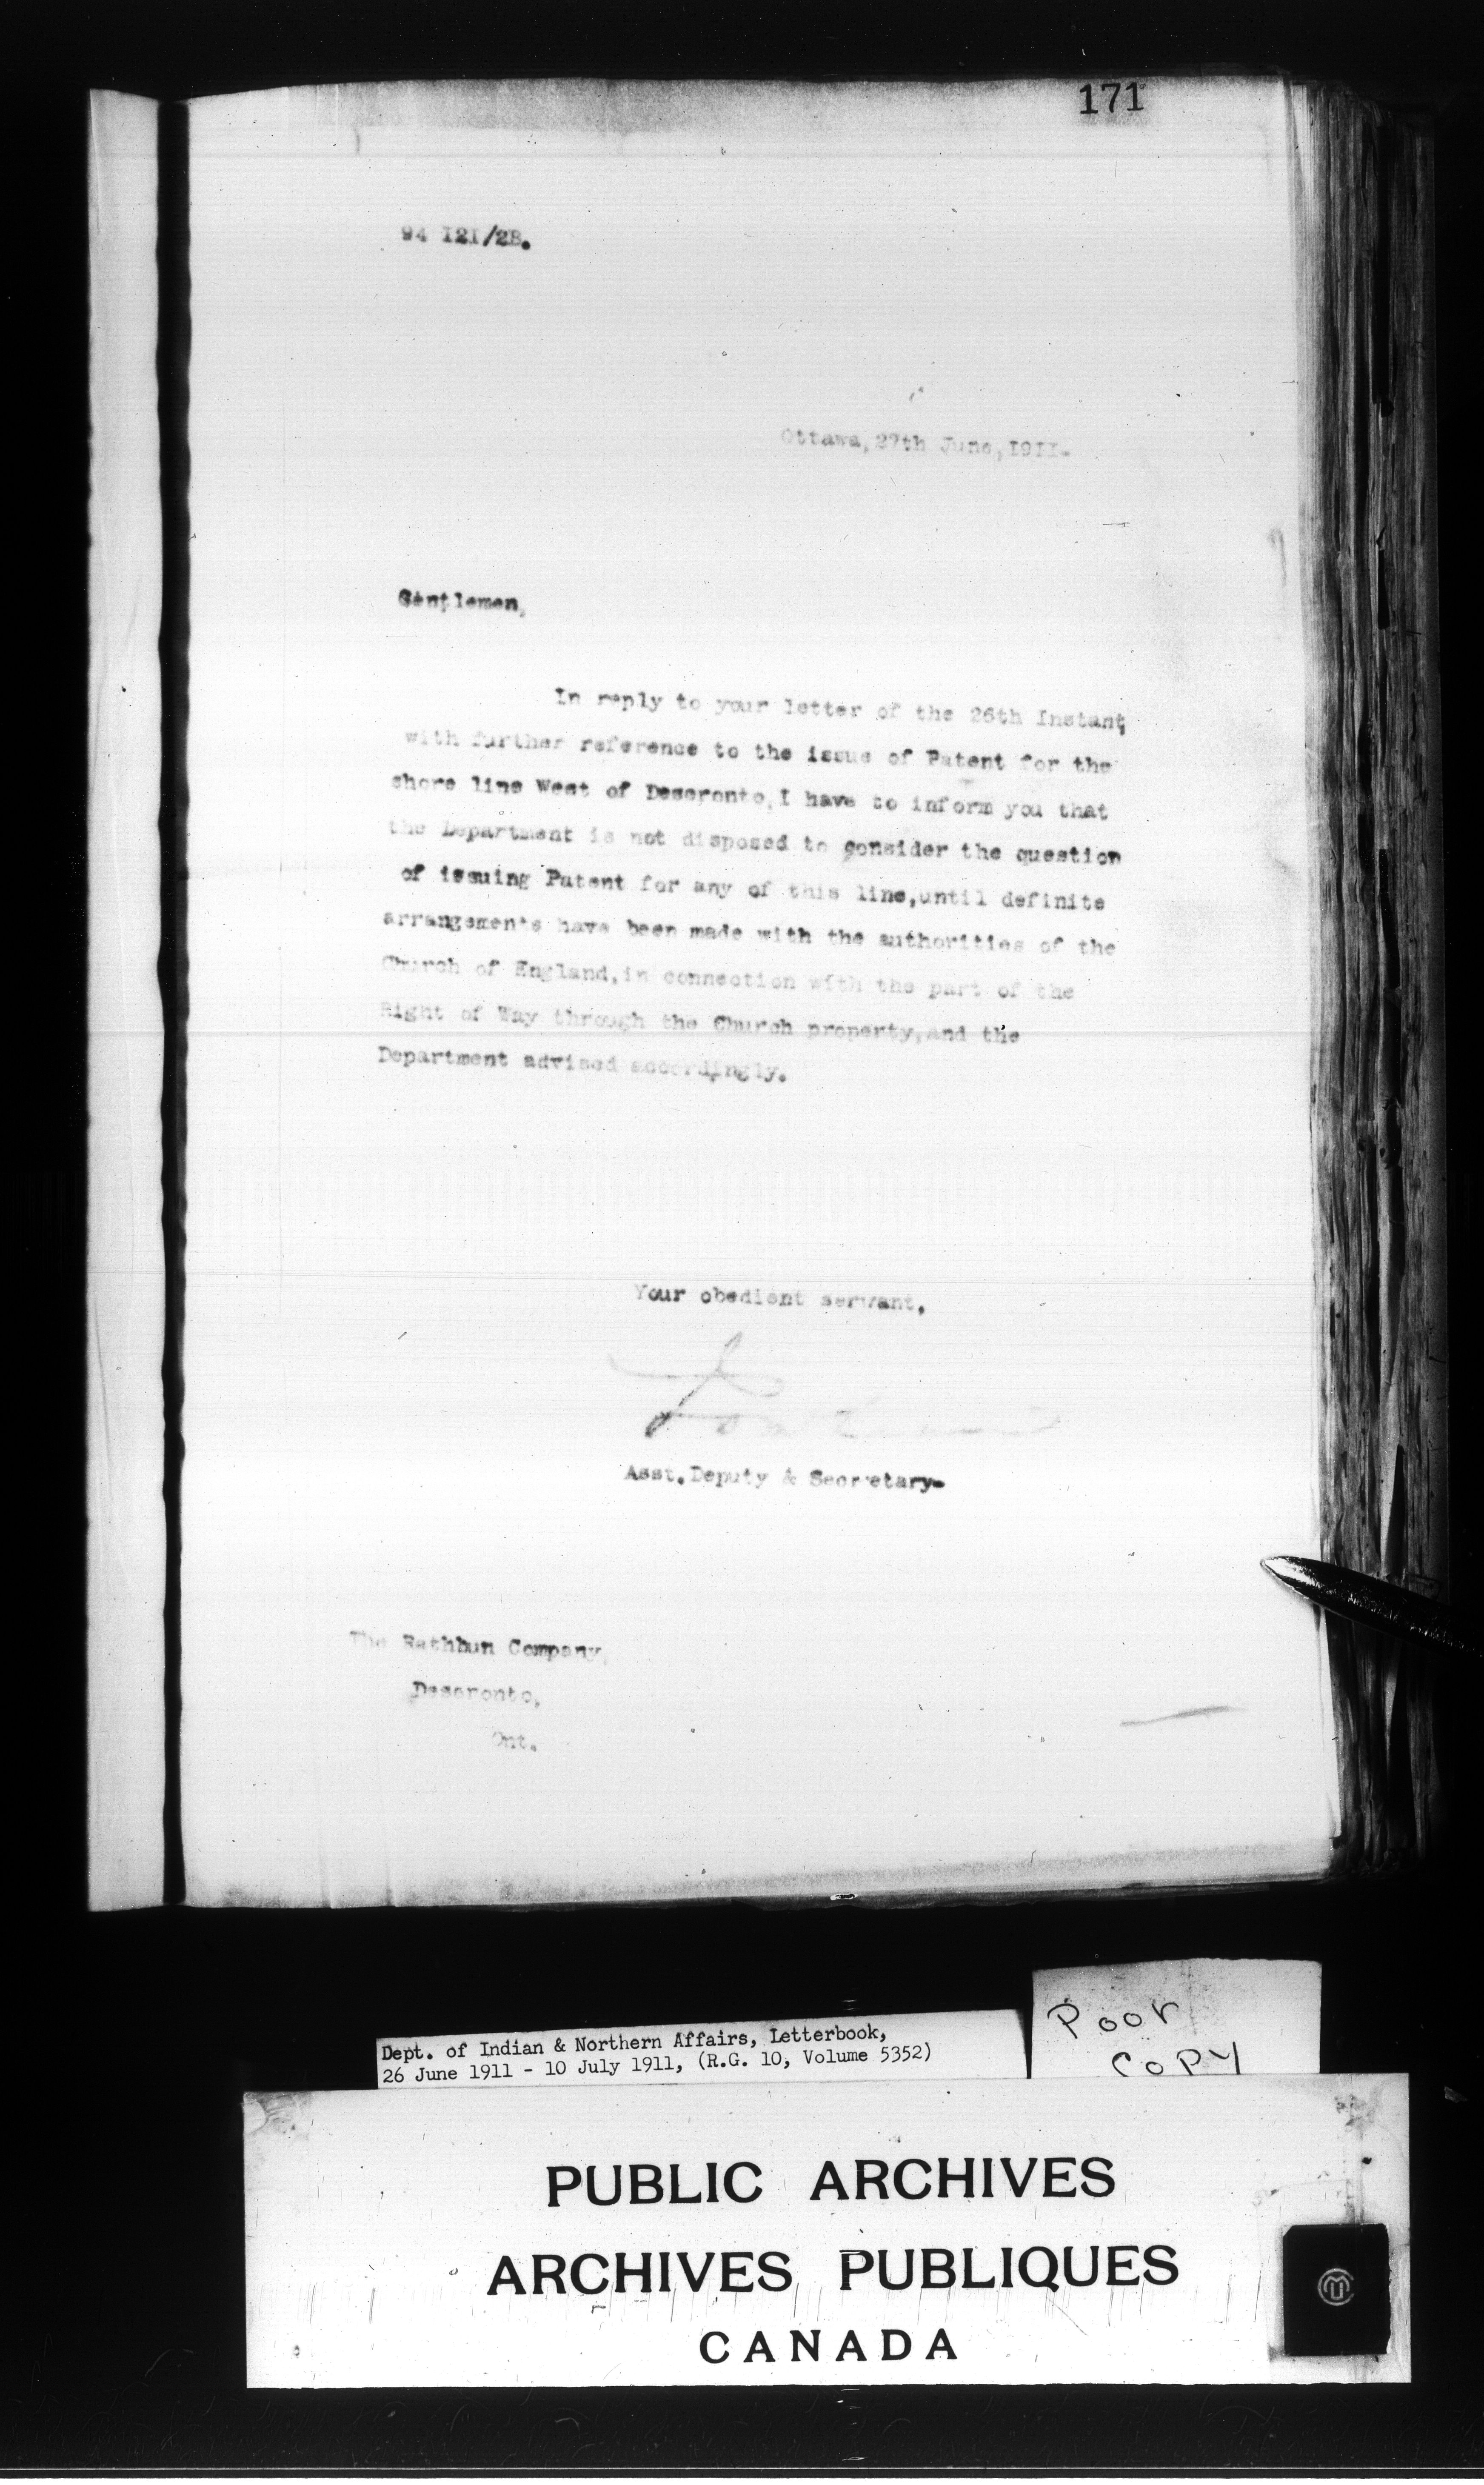 171
94 I2I/2B.
Ottawa, 27th June, I9II-
Gentlemen,
In reply to your letter of the 26th Instant,
with further reference to the issue of Patent for the
shore line West of Deseronto, I have to inform you that
the Department is not disposed to consider the question
of issuing Patent for any of this line, until definite
arrangements have been made with the authorities of the
Church of England, in connection with the part of the
Right of Way through the Church property, and the
Department advised accordingly.
Your obedient servant,
Asst. Deputy & Secretary-
The Rathbun Company,
Deseronto,
Ont.
Dept. of Indian & Northern Affairs, Letterbook,
26 June 1911 - 10 July 1911, (R.G. 10, Volume 5352)
Poor
Copy
PUBLIC ARCHIVES
ARCHIVES PUBLIQUES
CANADA